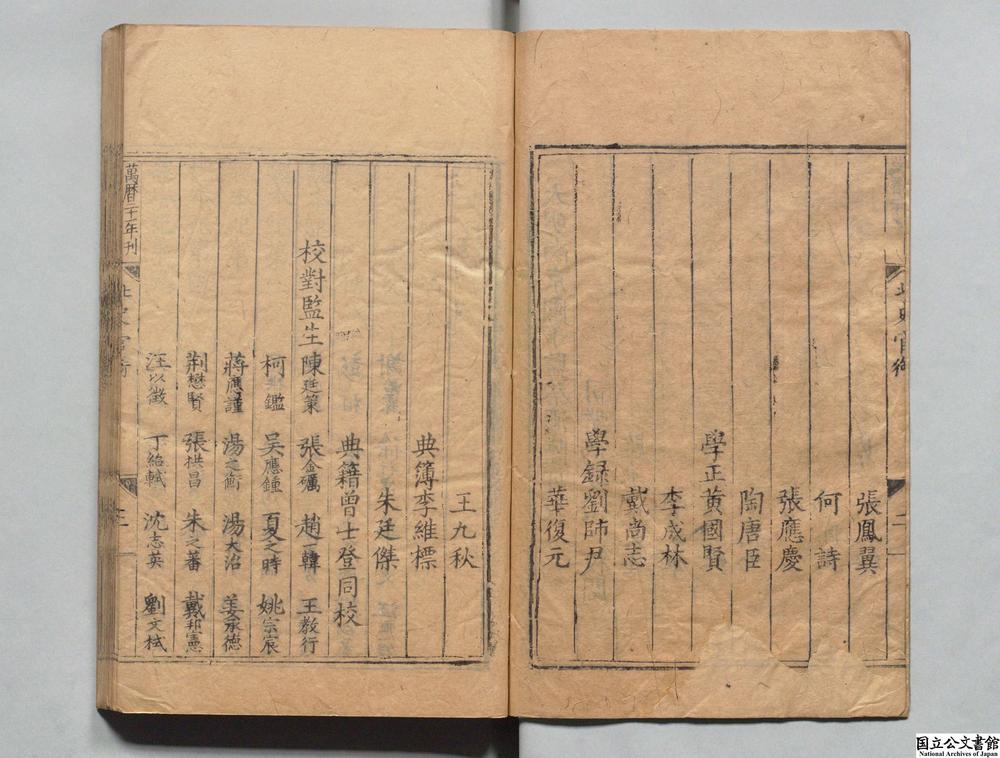 張鳳翼
何詩
張應慶
陶唐臣
學正黃國賢
李成林
戴尚志
學録劉師尹
華復元
王九秋
典簿李維標
朱廷傑
典籍曾士登同校
校對監生陳廷策 張金礪 趙一韓 王教行
柯鑑 吳應鍾 夏之時 姚宗宸
蔣應謹 湯之衡 湯大治 姜承德
荆懋賢 張拱昌 朱之蕃 戴邦憲
汪以徵 丁紹軾 沈志英 劉文棫
萬曆二十一年刊
北史官銜
国立公文書館
National Archives of Japan